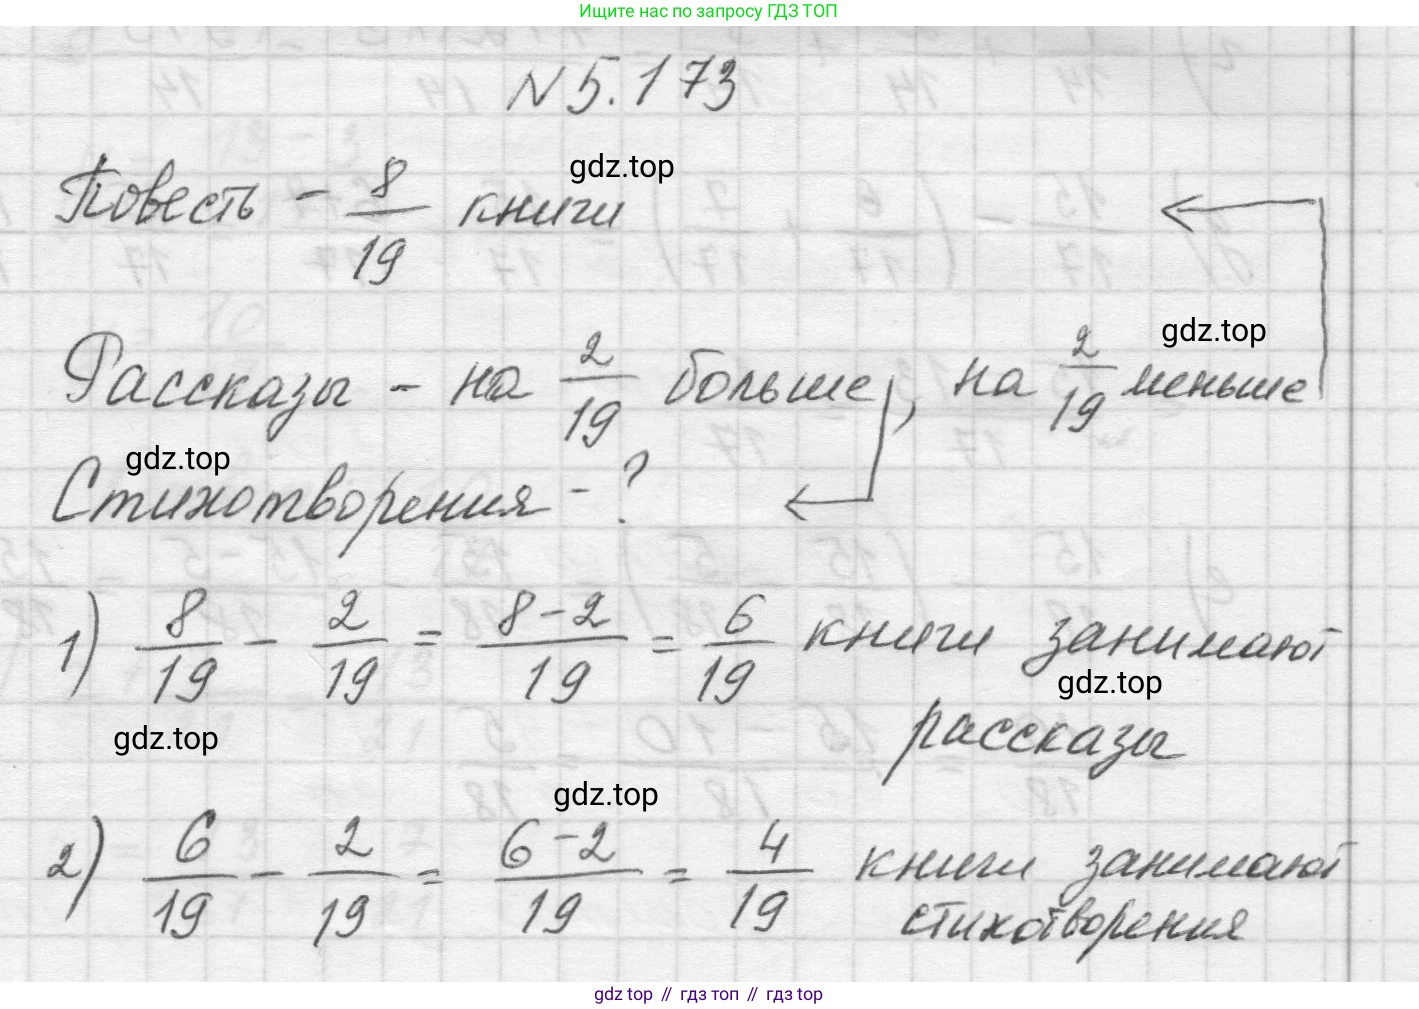 Ищите нас по запросу ГДЗ ТОП
N 5.173
gdz.top
Повесть - 8/19 книги
gdz.top
Рассказы - на 2/19 больше, на 2/19 меньше
gdz.top
Стихотворения - ?
1) 8/19 - 2/19 = 8-2/19 = 6/19 книги занимают
gdz.top
рассказы
gdz.top
gdz.top
2) 6/19 - 2/19 = 6-2/19 = 4/19 книги занимают
стихотворения
gdz top // гдз топ // гдз top